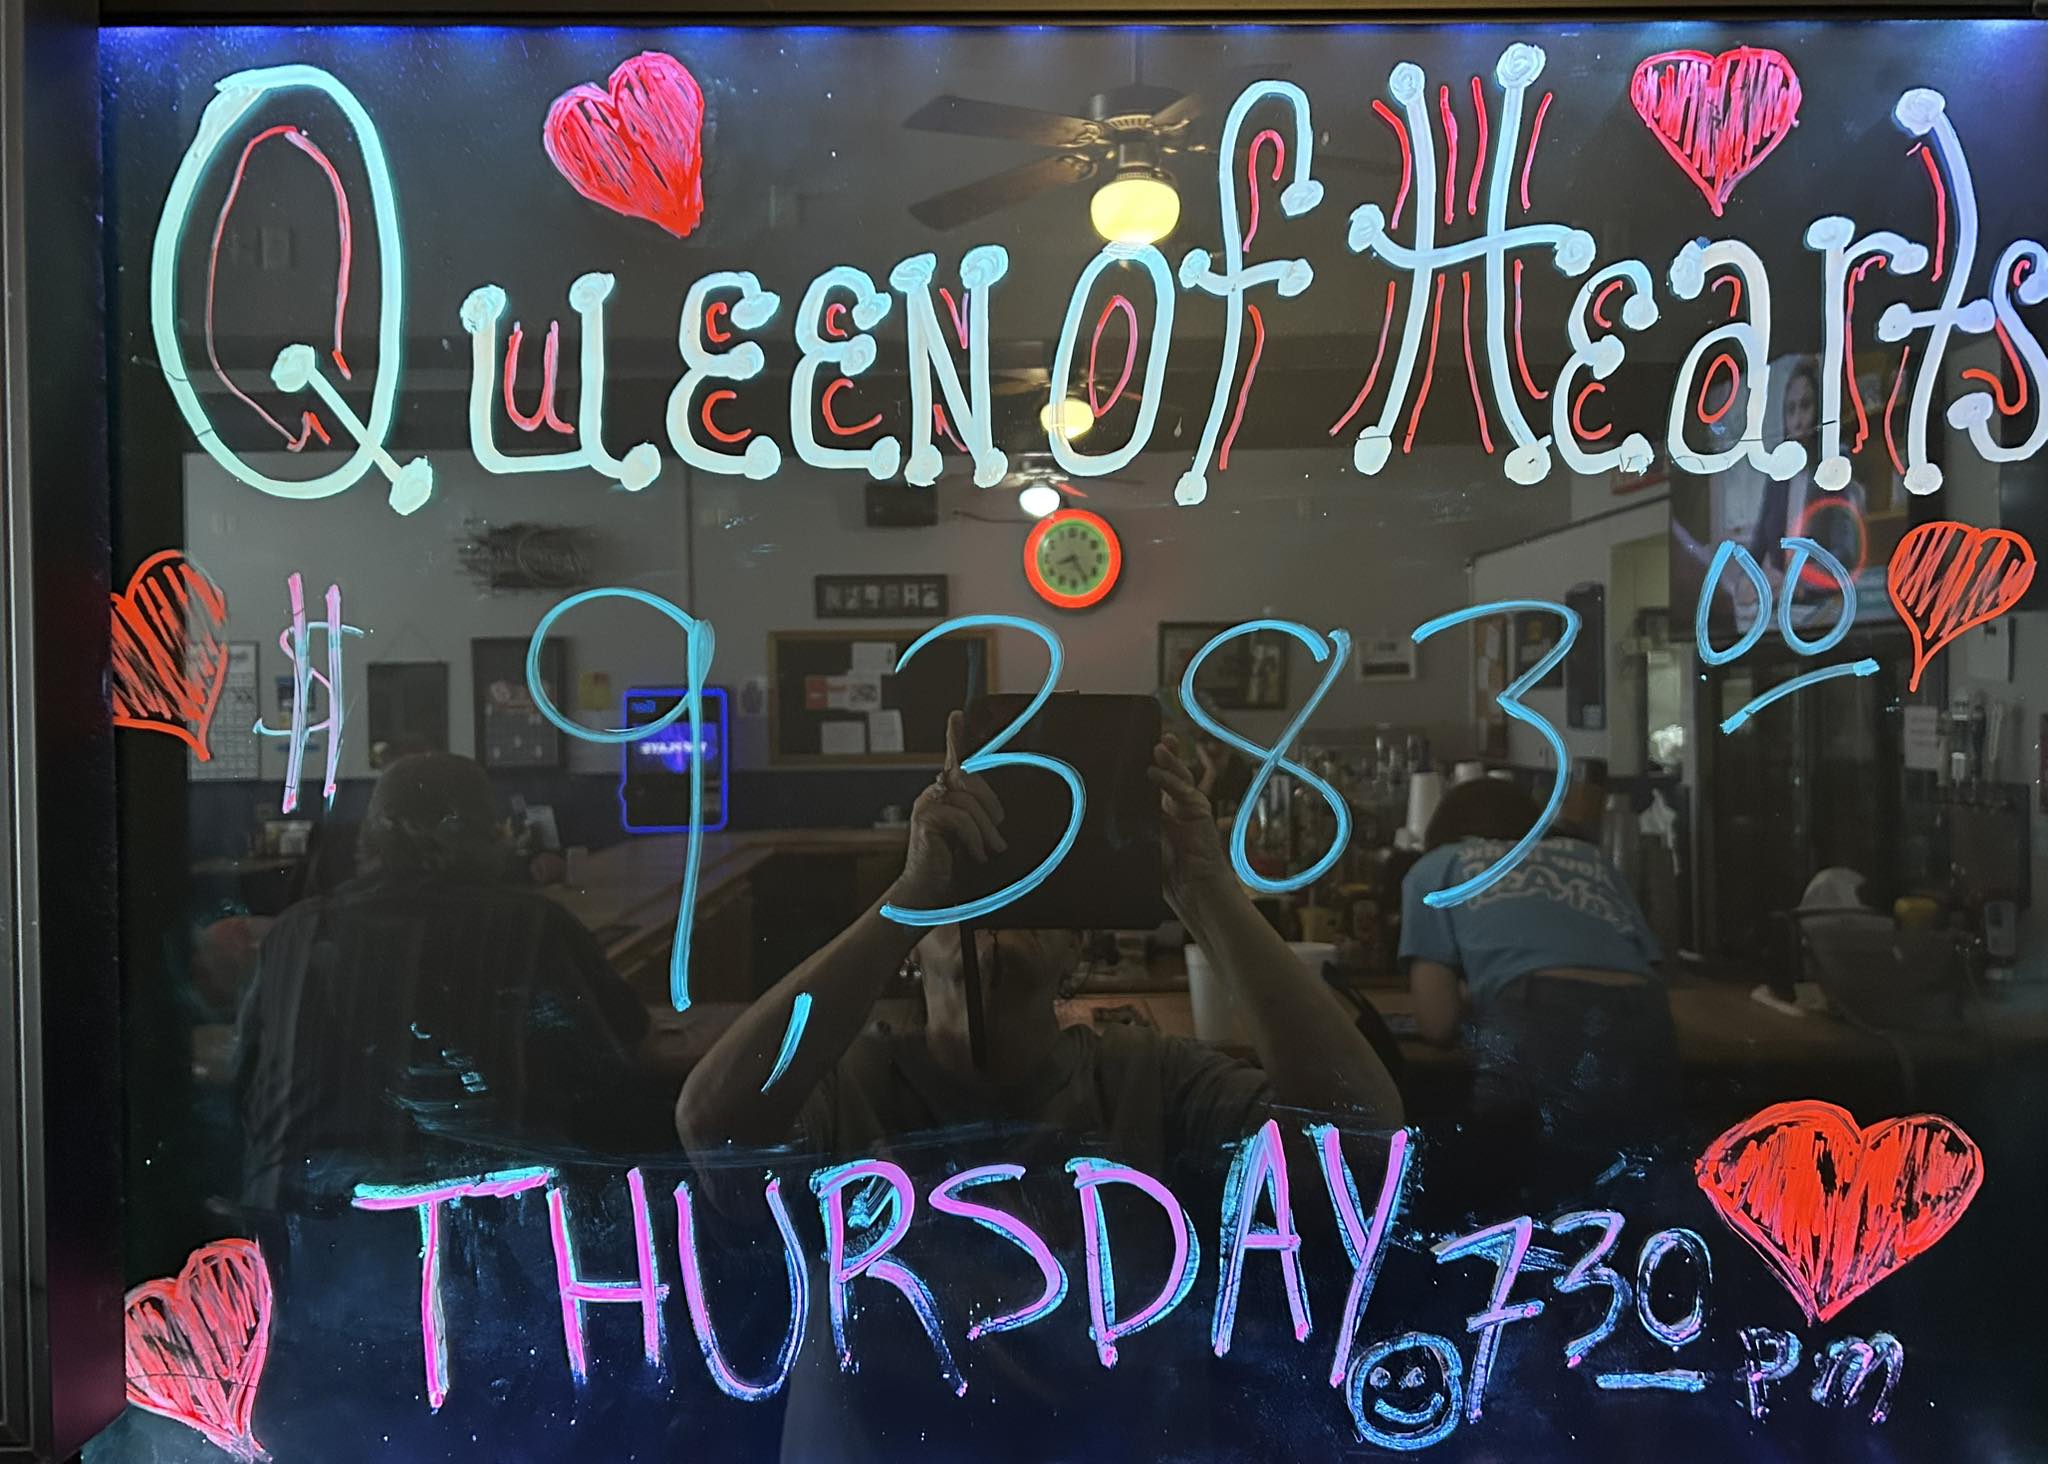 Queen of Hearts
$ 9,383 00
THURSDAY 730 pm